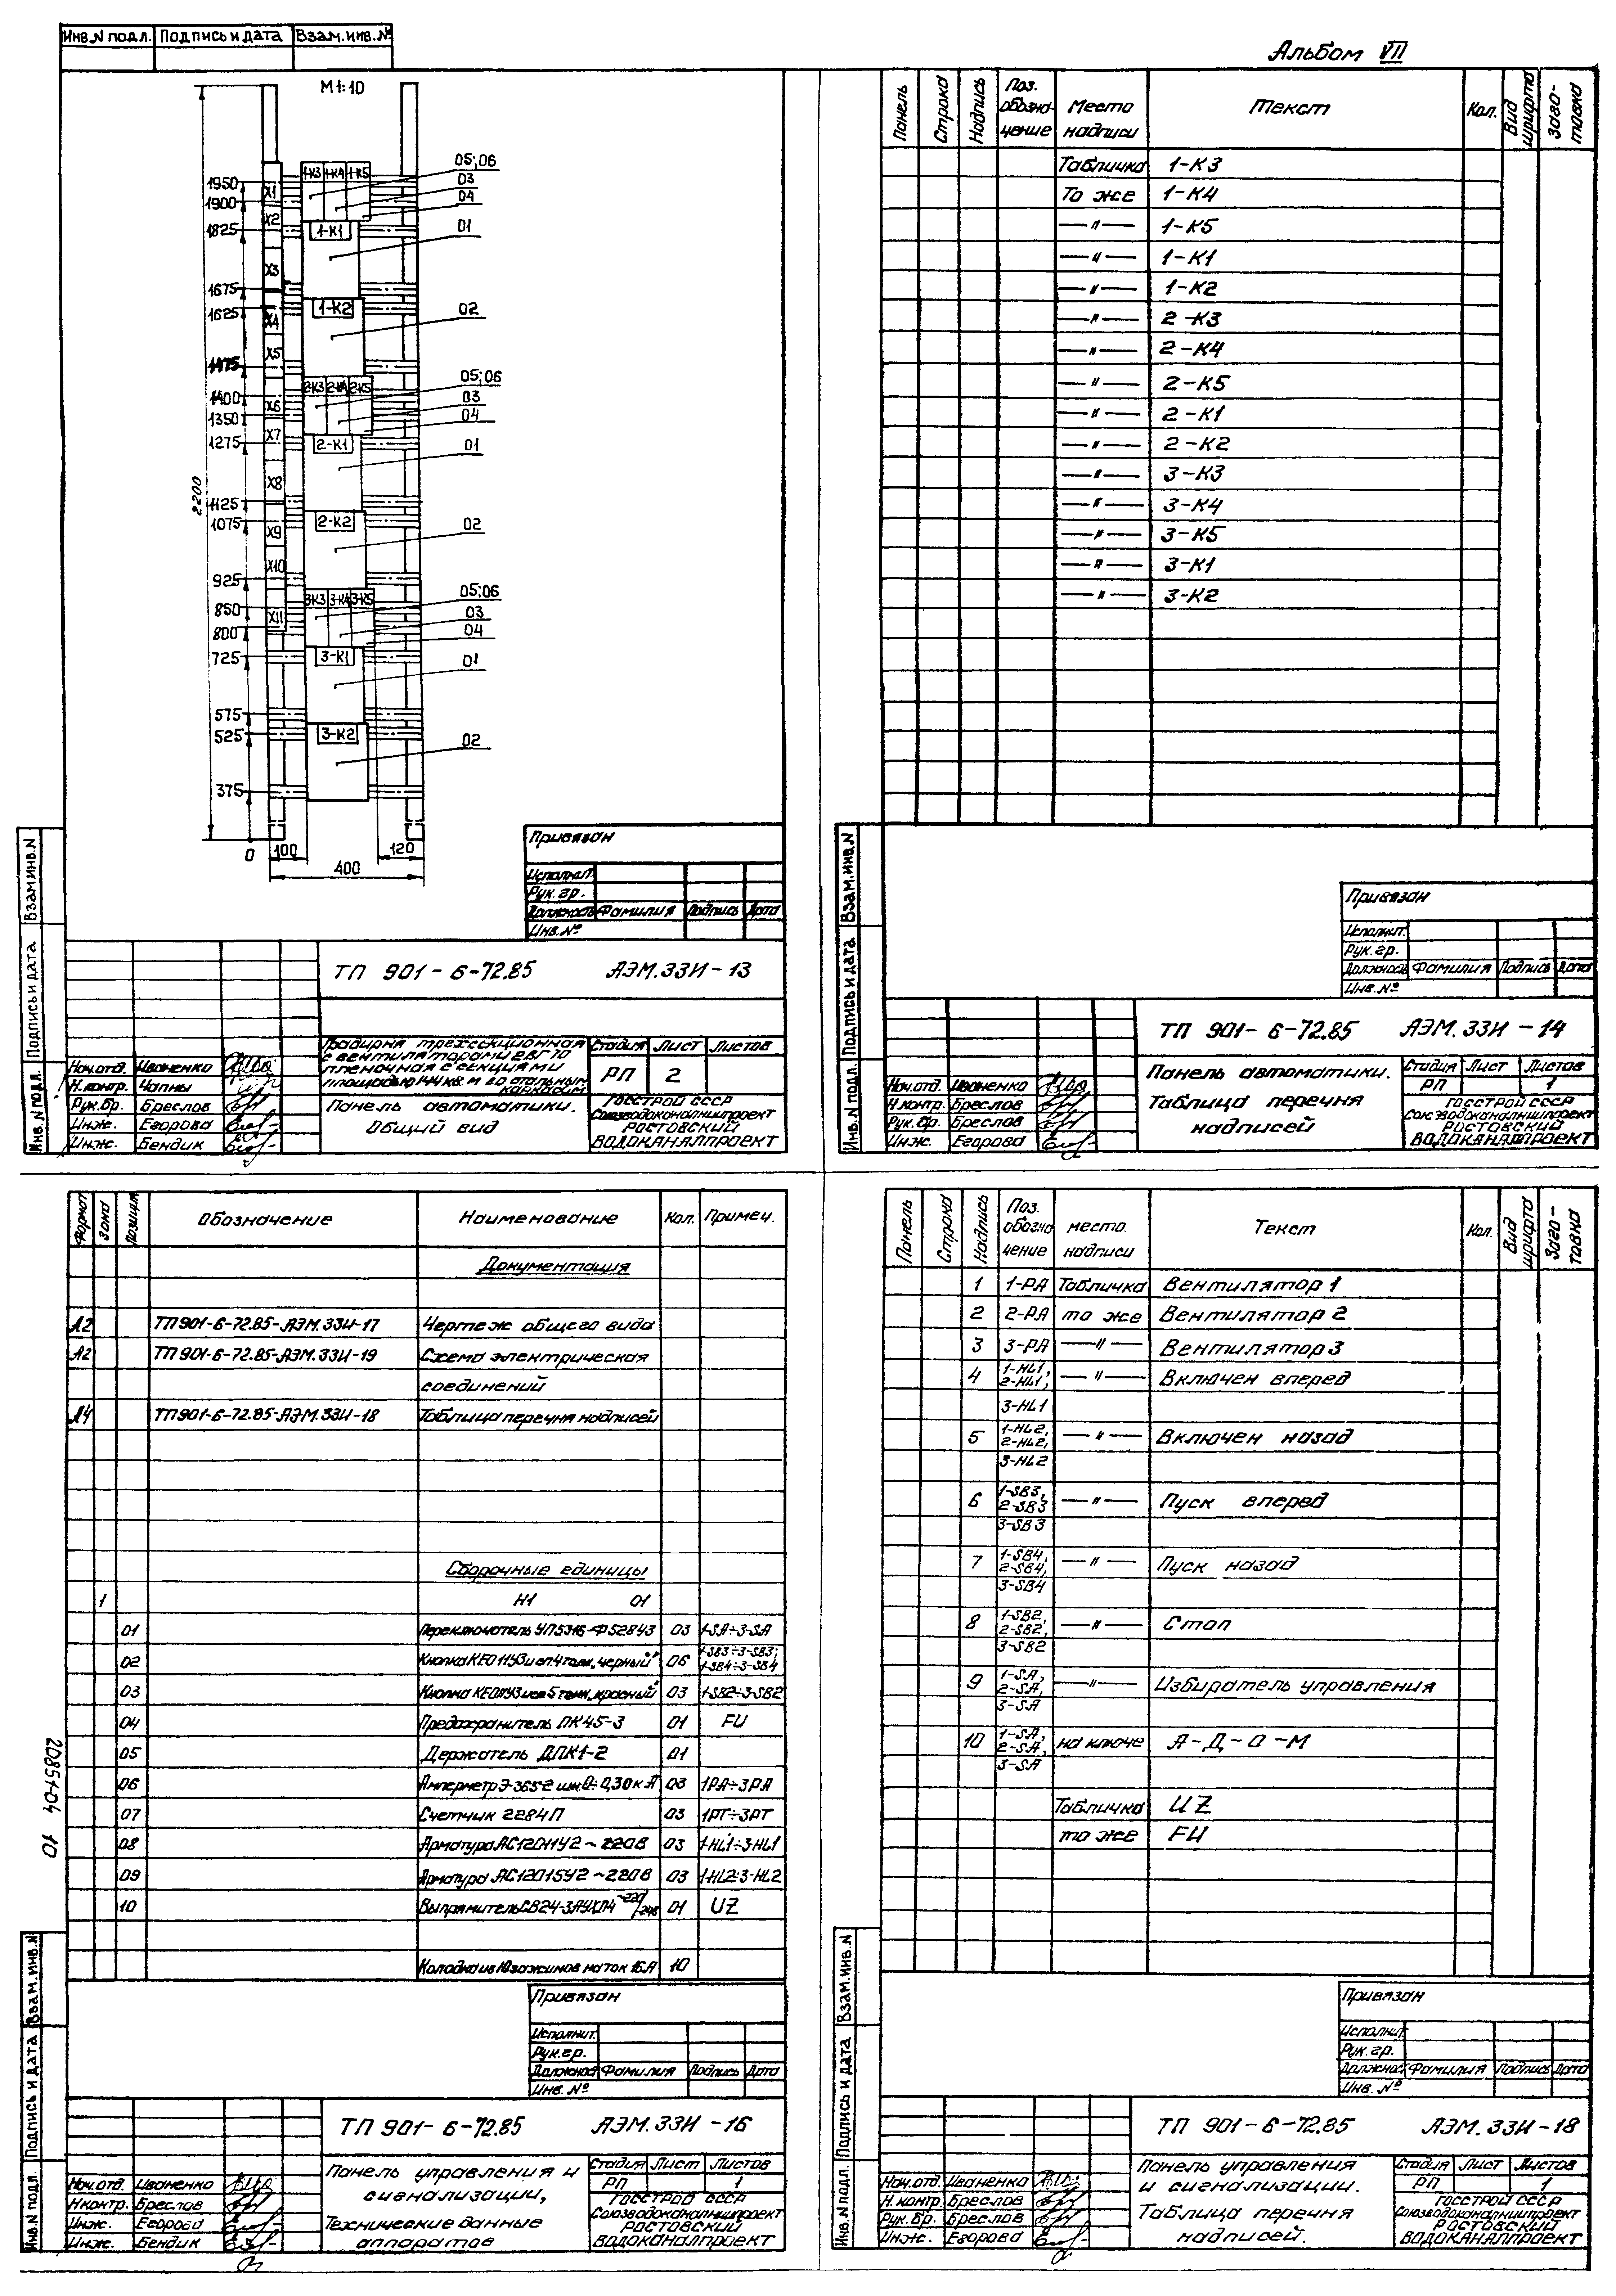 Инв.N подл. Подпись и дата Взам.инв.N
Альбом VII
М1:10
1-К3 1-К4 1-К5
05;06
03
04
1950
1900
1825
X1
X2
1-К1
01
X3
1675
1625
1-К2
02
X4
X5
1475
2-К3 2-К4 2-К5
05;06
03
04
1400
1350
1275
X6
X7
2-К1
01
2200
X8
1125
1075
2-К2
02
X9
X10
925
850
800
725
3-К3 3-К4 3-К5
05;06
03
04
X11
3-К1
01
575
525
3-К2
02
375
0
100
400
120
Привязан
Исполнит.
Рук. гр.
Должность Фамилия Подпись Дата
Инв. №
Инв. N подл. Подпись и дата Взам.инв.N
ТП 901-6-72.85 АЭМ.33И-13
Градирня трехсекционная
с вентиляторами 2ВГ70
пленочная с секциями
площадью 144 кв. м со стальным
каркасом
Стадия Лист Листов
РП 2
Нач.отд. Иваненко
Н.контр. Чапны
Рук.бр. Бреслов
Инж. Егорова
Инж. Бендик
Панель автоматики.
Общий вид
ГОССТРОЙ СССР
Союзводоканалниипроект
РОСТОВСКИЙ
ВОДОКАНАЛПРОЕКТ
Панель Строка Надпись Поз. обозна-чение Место надписи Текст Кол. Вид шрифта Заго-товка
Табличка 1-К3
То же 1-К4
—〃— 1-К5
—〃— 1-К1
—〃— 1-К2
—〃— 2-К3
—〃— 2-К4
—〃— 2-К5
—〃— 2-К1
—〃— 2-К2
—〃— 3-К3
—〃— 3-К4
—〃— 3-К5
—〃— 3-К1
—〃— 3-К2
Привязан
Исполнит.
Рук. гр.
Должность Фамилия Подпись Дата
Инв. №
Инв. N подл. Подпись и дата Взам.инв.N
ТП 901-6-72.85 АЭМ.33И-14
Нач.отд. Иваненко
Н.контр. Бреслов
Рук. бр. Бреслов
Инж. Егорова
Панель автоматики.
Таблица перечня
надписей
Стадия Лист Листов
РП 1
ГОССТРОЙ СССР
Союзводоканалниипроект
РОСТОВСКИЙ
ВОДОКАНАЛПРОЕКТ
Формат Зона Позиция Обозначение Наименование Кол. Примеч.
Документация
А2 ТП901-6-72.85-АЭМ.33И-17 Чертеж общего вида
А2 ТП901-6-72.85-АЭМ.33И-19 Схема электрическая
соединений
А4 ТП901-6-72.85-АЭМ.33И-18 Таблица перечня надписей
Сборочные единицы
1 Н1 01
01 Переключатель УП5316-Ф528У3 03 1-SA÷3-SA
02 Кнопка КЕ011У3 исп.4 толк. „черный" 06 1-SB3÷3-SB3; 1-SB4÷3-SB4
03 Кнопка КЕ011У3 исп 5 толк. „красный" 03 1-SB2÷3-SB2
04 Предохранитель ПК45-3 01 FU
05 Держатель ДПК1-2 01
06 Амперметр Э-365-2 шк. 0÷0,30кА 03 1PA÷3PA
07 Счетчик 2284П 03 1PT÷3PT
08 Арматура АС12011У2 ~ 220В 03 1-HL1÷3-HL1
09 Арматура АС12015У2 ~ 220В 03 1-HL2÷3-HL2
10 Выпрямитель СВ24-3АУХЛ4 ~220/-24В 01 UZ
Колодка из 10 зажимов на ток 16А 10
20851-04 10
Привязан
Исполнит.
Рук. гр.
Должност Фамилия Подпись Дата
Инв. №
Инв. N подл. Подпись и дата Взам.инв.N
ТП 901-6-72.85 АЭМ.33И-16
Нач.отд. Иваненко
Н контр. Бреслов
Инж. Егорова
Инж. Бендик
Панель управления и
сигнализации,
Технические данные
аппаратов
Стадия Лист Листов
РП 1
ГОССТРОЙ СССР
Союзводоканалниипроект
РОСТОВСКИЙ
ВОДОКАНАЛПРОЕКТ
Панель Строка Надпись Поз. обозна чение место надписи Текст Кол. Вид шрифта Заго-товка
1 1-PA Табличка Вентилятор 1
2 2-PA то же Вентилятор 2
3 3-PA —〃— Вентилятор 3
4 1-HL1, 2-HL1, 3-HL1 —〃— Включен вперед
5 1-HL2, 2-HL2, 3-HL2 —〃— Включен назад
6 1-SB3, 2-SB3 3-SB3 —〃— Пуск вперед
7 1-SB4, 2-SB4, 3-SB4 —〃— Пуск назад
8 1-SB2, 2-SB2, 3-SB2 —〃— Стоп
9 1-SA, 2-SA, 3-SA —〃— Избиратель управления
10 1-SA, 2-SA, 3-SA на ключе А-Д-О-М
Табличка UZ
то же FU
Привязан
Исполнит.
Рук. гр.
Должност Фамилия Подпись Дата
Инв. №
Инв. N подл. Подпись и дата Взам.инв.N
ТП 901-6-72.85 АЭМ.33И-18
Нач.отд. Иваненко
Н.контр. Бреслов
Рук.бр. Бреслов
Инж. Егорова
Панель управления
и сигнализации.
Таблица перечня
надписей.
Стадия Лист Листов
РП 1
ГОССТРОЙ СССР
Союзводоканалниипроект
РОСТОВСКИЙ
ВОДОКАНАЛПРОЕКТ